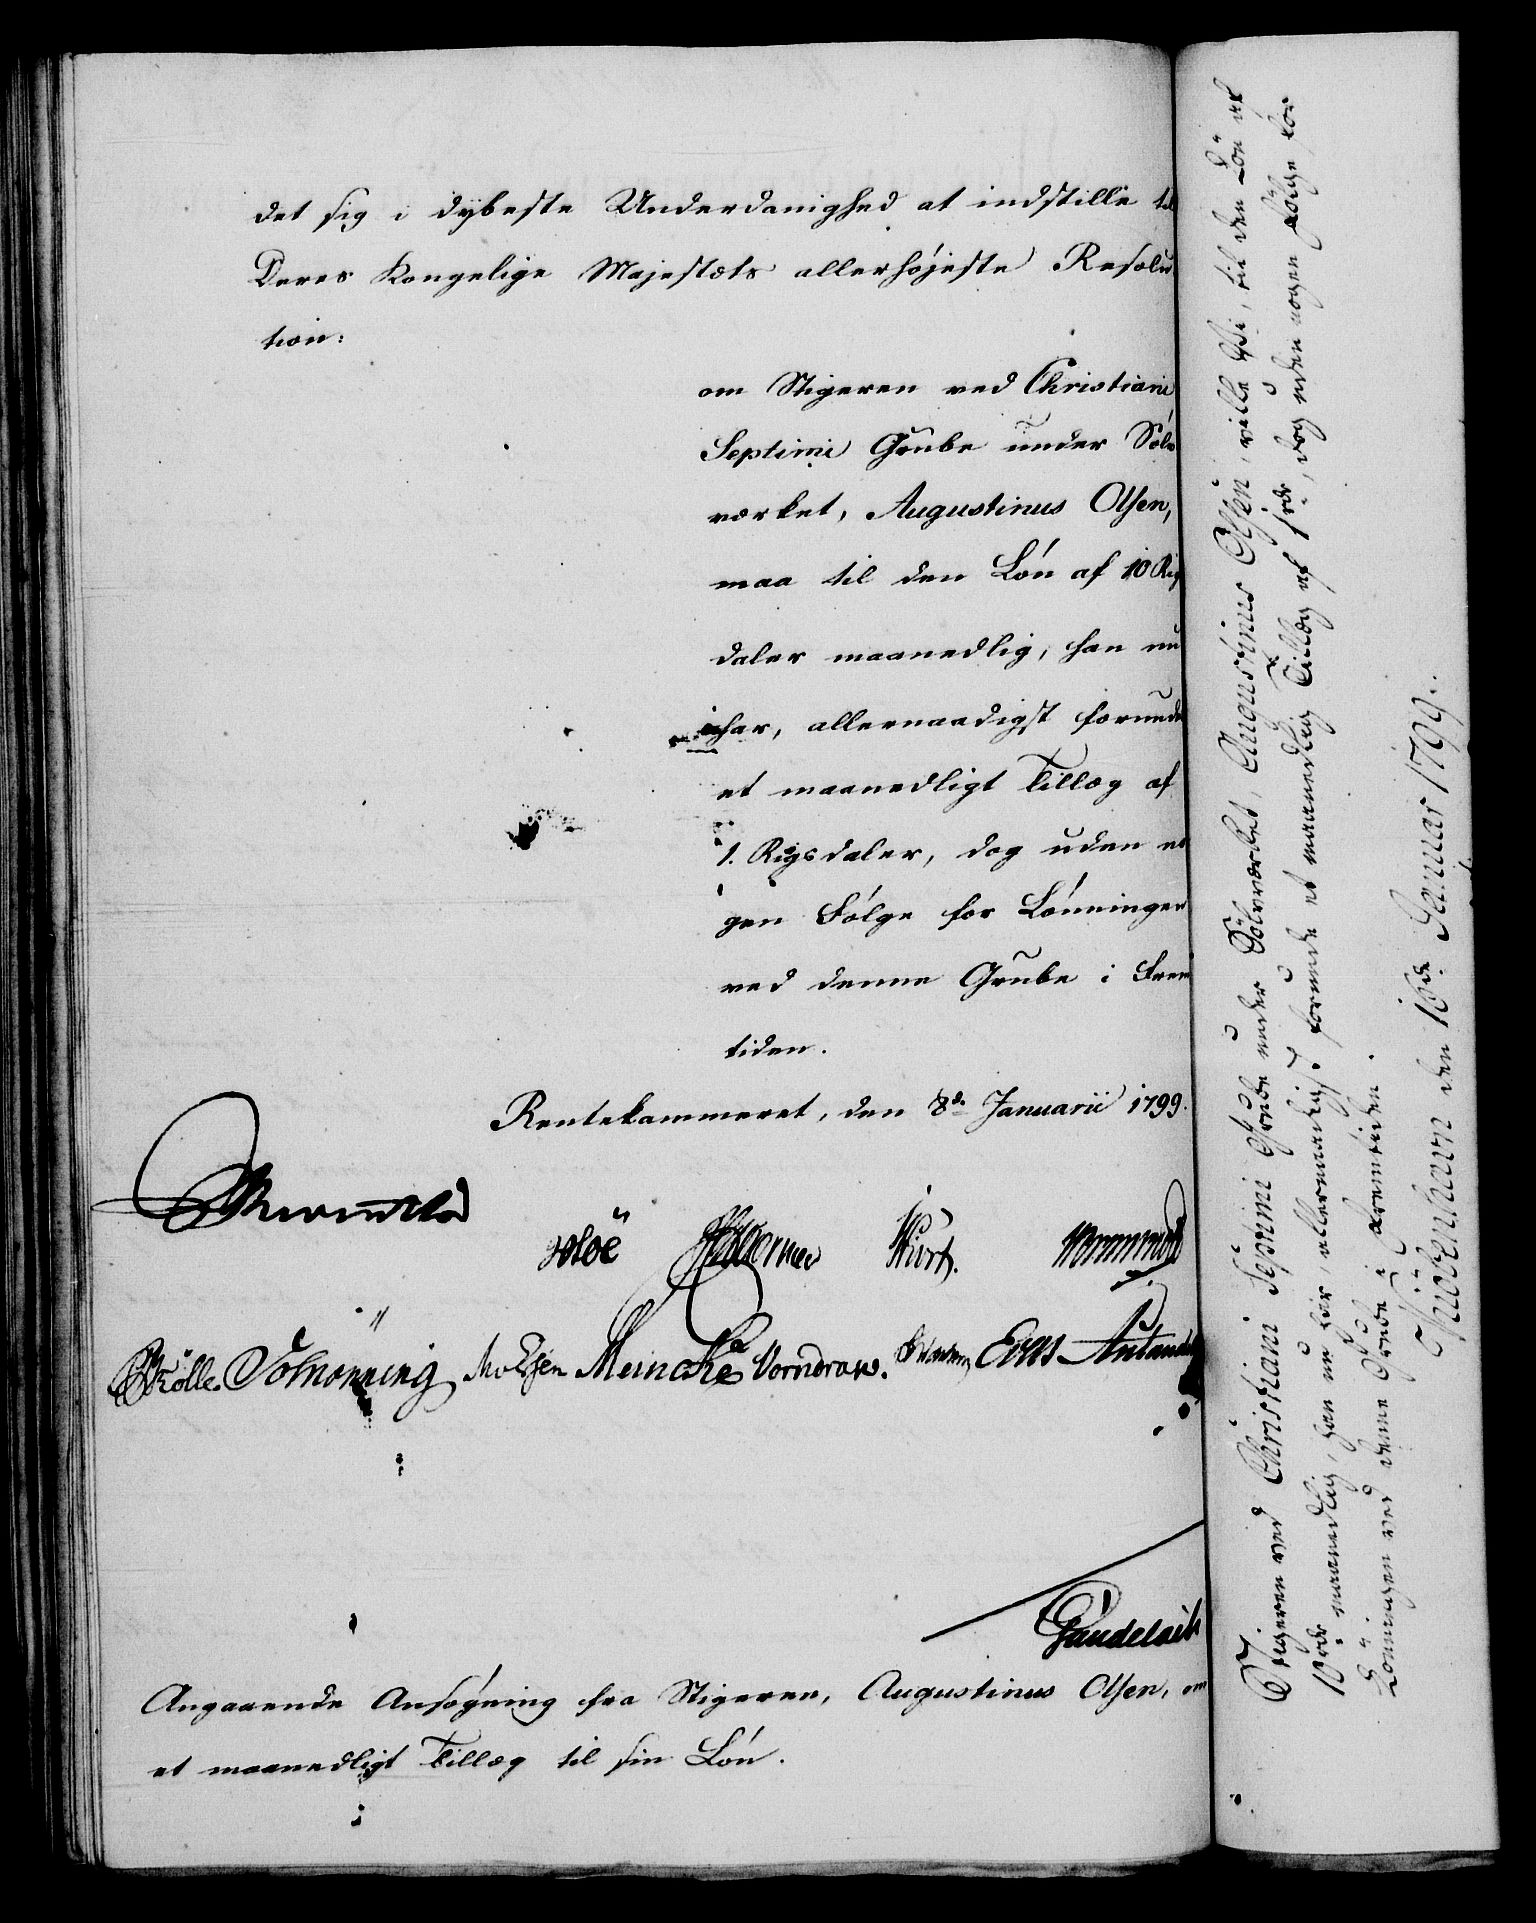 det sig i dybeste Underdanighed at indstille til
Deres Kongelige Majestæts allerhøjeste Resolu
tion:
om Stigeren ved Christiani
Septimi Grube under Sølv
værket, Augustinus Olsen,
maa til den Løn af 10 Rigs
daler maanedlig, han nu
har, allernaadigst forunde
et maanedligt Tillæg af
1. Rigsdaler, dog uden no
gen Følge for Lønningen
ved denne Grube i Frem
tiden.
Rentekammeret, den 8de Januarii 1799.
Wormskiold
Hoë Wormskiold
Kølle. Selmer Meincke Vorndran.
Angaaende Ansøgning fra Stigeren, Augustinus Olsen, om
et maanedligt Tillæg til sin Løn.
Stigeren ved Christiani Septimi Grube under Sölvværket, Augustinus Olsen, ville Vi, til den Lön af
10 rdr maanedlig, han nu har, allernaadigst forunde et maanedlig Tillæg af 1 rdr, dog uden nogen Følge for
Lönningen ved denne Grube i Fremtiden.
Kiöbenhavn den 16de Januar 1799.